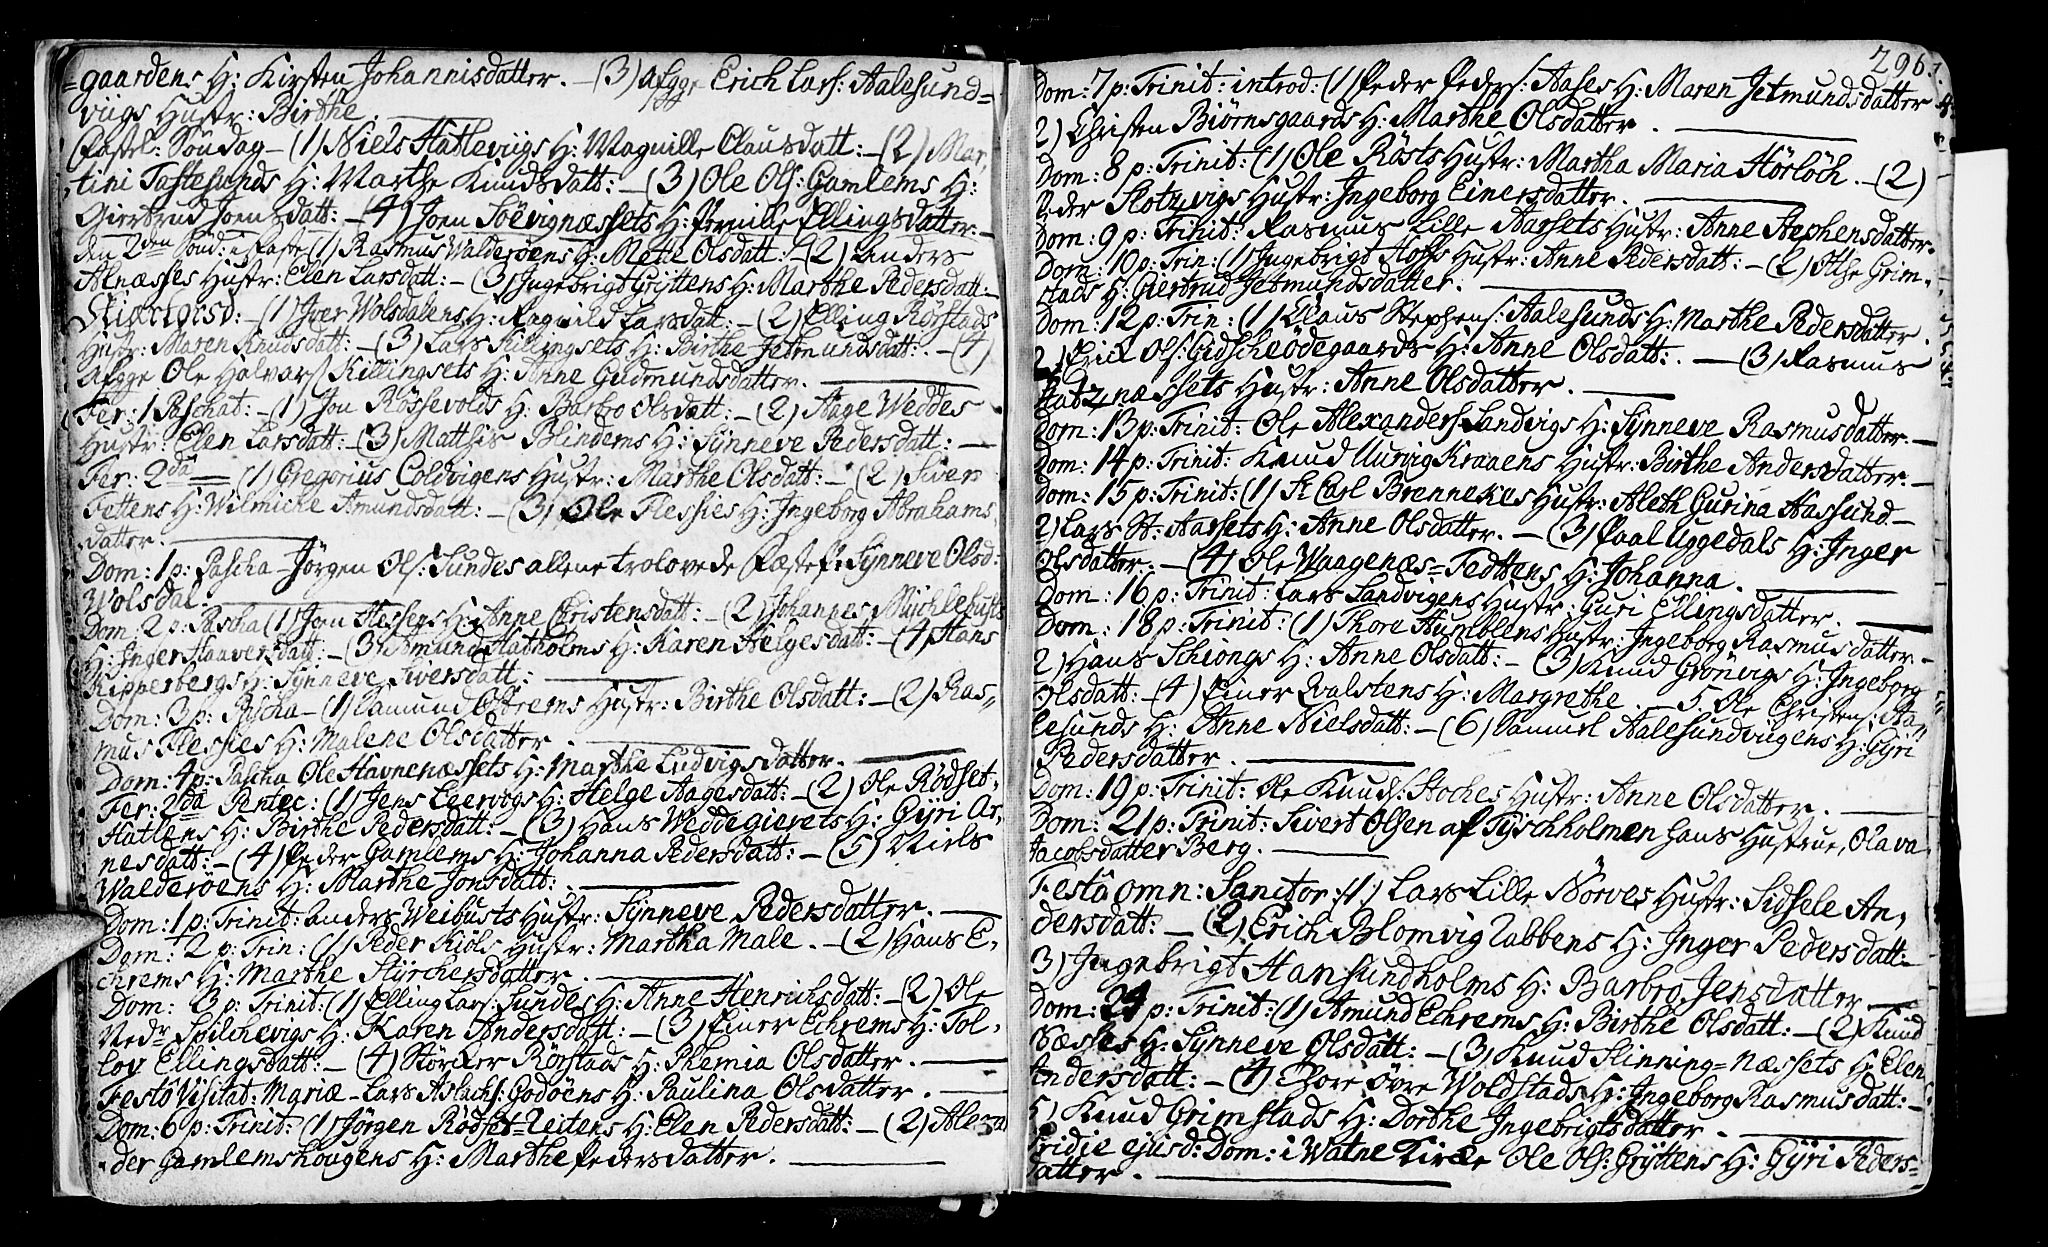 =gaardens H: Kirsten Johannisdatter. – (3) afgge Erich Lars: Aalesund=
viigs Hustr: Birthe.
Fastel: Söndag – (1) Niels Hatleviigs H: Magnille Clausdatt: – (2) Mar,
tini Taftesunds H: Marthe Knudsdatt: – (3) Ole Ols: Gamlems H:
Giertrud Joensdatt: – (4) Joen Soëvignæssets H: Pernille Ellingsdatter. –
den 2den Sönd: i Faste (1) Rasmus Walderöens H: Mete Olsdatt: – (2) Anders
Alnæsses Hustr: Elen Larsdatt: – (3) Ingebrigt Gryttens H: Marthe Pedersdatt: –
Skiertorsd: – (1) Iver Wolsdalens H: Ragnild Larsdatt: – (2) Elling Rörstads
Hustr: Maren Knudsdatt: – (3) Lars Killingsets H: Birthe Jetmundsdatt: – (4)
Afgge Ole Halvars: Killingsets H: Anne Gudmundsdatter.
Fer: 1 Paschat: – (1) Jon Rössevolds H: Barbro Olsdatt: – (2) Aage Weddes
Hustr: Elen Larsdatt: – (3) Matthis Blindems H: Synneve Pedersdatt: –
Fer: 2da – (1) Gregorius Coldvigens Hustr: Marthe Olsdatt: – (2) Siver
Fettens H: Wilmicke Amundsdatt: – (3) Ole Flessies H: Ingeborg Abrahams,
datter.
Dom: 1 p: Pascha – Jörgen Ols: Sundes allene trolovede Fæste Synneve Olsd:
Wolsdal.
Dom: 2 p: Pascha (1) Jon Hessens H: Anne Christensdatt: – (2) Johannes Mychlebusts
H: Inger Haaversdatt: – (3) Amund Hatholms H: Karen Helgesdatt: – (4) Hans
Kipperbergs H: Synneve Siversdatt:
Dom: 3 p: Pascha – (1) Aamund Echrems Hustr: Birthe Olsdatt: – (2) Ras,,
mus Flessies H: Malene Olsdatter.
Dom: 4 p: Pascha Ole Havnenæssets H: Marthe Ludvigsdatter.
Fer: 2da Pentec: (1) Jens Leervogs H: Helge Aagesdatt: – (2) Ole Rödset-
Hatlens H: Birthe Pedersdatt: – (3) Hans Weddegierets H: Gyri Ar,
nesdatt: – (4) Peder Gamlems H: Johanna Pedersdatt: – (5) Niels
Walderöens H: Marthe Jonsdatt:
Dom: 1 p: Trinit: Anders Weibusts Hustr: Synneve Pedersdatter.
Dom: 2 p: Trin: (1) Peder Kiöls Hustr: Martha Male. – (2) Hans E,
chrems H: Marthe Styrchersdatter.
Dom: 3 p: Trinit: (1) Elling Lars: Sundes H: Anne Henrichsdatt: – (2) Ole
Nedr Spilchevigs H: Karen Andersdatt: – (3) Einer Echrems H: Tol,
lov Ellingsdatt: – (4) Störker Rörstads H: Phemia Olsdatter.
Festô Visitat: Mariæ – Lars Aslachs: Godöens H: Paulina Olsdatter.
Dom: 6 p: Trinit: (1) Jörgen Rödset-Reitens H: Elen Pedersdatt: – (2) Alexan
der Gamlemshougens H: Marthe Pedersdatter.
296.
Dom: 7 p: Trinit: introd: (1) Peder Peders: Aases H: Maren Jetmundsdatter
2) Christen Biörnsgaards H: Marthe Olsdatter.
Dom: 8 p: Trinit: (1) Ole Rösts Hustr: Martha Maria Hörlöch. – (2)
Peder Flotzvigs Hustr: Ingeborg Einersdatter.
Dom: 9 p: Trinit: Rasmus Lille Aarsets Hustr: Anne Stephensdatter.
Dom: 10 p: Trin: (1) Ingebrigt Hoffs Hustr: Anne Pedersdatt: – (2) Ose Grim-
stads H: Giertrud Jetmundsdatter.
Dom: 12 p: Trin: (1) Claus Stephens: Aalesunds H: Marthe Pedersdatter.
2) Erick Ols: Gidscheödegaards H: Anne Olsdatt: – (3) Rasmus
Katznæssets Hustr: Anne Olsdatter.
Dom: 13 p: Trinit: Ole Alexanders: Landvigs H: Synneve Rasmusdatter. –
Dom: 14 p: Trinit: Knud Uurvig Kraaens Hustr: Birthe Andersdatter. –
Dom: 15 p: Trinit: (1) Sr Carl Brennekes Hustr: Aleth Gurina Aassund –
2) Lars St: Aarsets H: Anne Olsdatter. – (3) Paal Uggedals H: Inger
Olsdatter. – (4) Ole Waagenæs=Fedttens H: Johanna.
Dom: 16 p: Trinit: Lars Landvigens Hustr: Guri Ellingsdatter.
Dom: 18 p: Trinit: (1) Thore Humblens Hustr: Ingeborg Rasmusdatter –
2) Hans Schiongs H: Anne Olsdatt: – (3) Knud Grönvigs H: Ingeborg
Olsdatt: (4) Einer Qvalstens H: Margrethe. – 5. Ole Christens: Aa,,
lesunds H: Anne Nielsdatt: – (6) Samuel Aalesundviigens H: Gyri
Pedersdatter.
Dom: 19 p: Trinit: Ole Knuds: Stoches Hustr: Anne Olsdatter.
Dom: 21 p: Trinit: Sivert Olsen af Tyschholmen hans Hustrue, Olava
Jacobsdatter Berg.
Festô omn: Sanctor: (1) Lars Lille Nörves Hustr: Sidsele An,
dersdatt: – (2) Erich Blomvig Rabbens H: Inger Pedersdatt:
3) Ingebrigt Hansundholms H: Barbro Jensdatter.
Dom: 24 p: Trinit: (1) Amund Echrems H: Birthe Olsdatt: – (2) Knud
Næsses H: Synneve Olsdatt: – (3) Knud Slinning=Næssets H: Elen
Andersdatt: – (4) Thore övre Woldstads H: Ingeborg Rasmusdatt: –
5) Knud Grimstads H: Dorthe Ingebrigtsdatter.
Pridie ejusd: Dom: i Watne Kirke Ole Ols: Gryttens H: Gyri Peders=
datter.